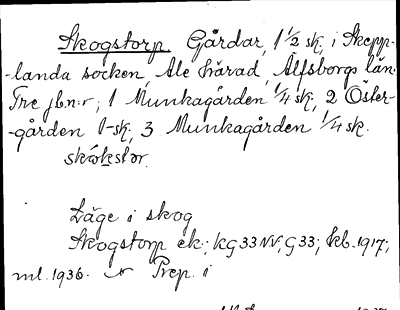 Skogstorp. Gårdar, 1 1/2 sk, i Skepp-
-landa socken, Ale härad, Älfsborgs län.
Tre jb.n:r; 1 Munkagården 1/4 sk, 2 Öster-
-gården 1-sk, 3 Munkagården 1/4 sk.
skòkstor.
Läge i skog
Skogstorp ek; KG33NV, G33; kb. 1917;
ml. 1936. Prep. i